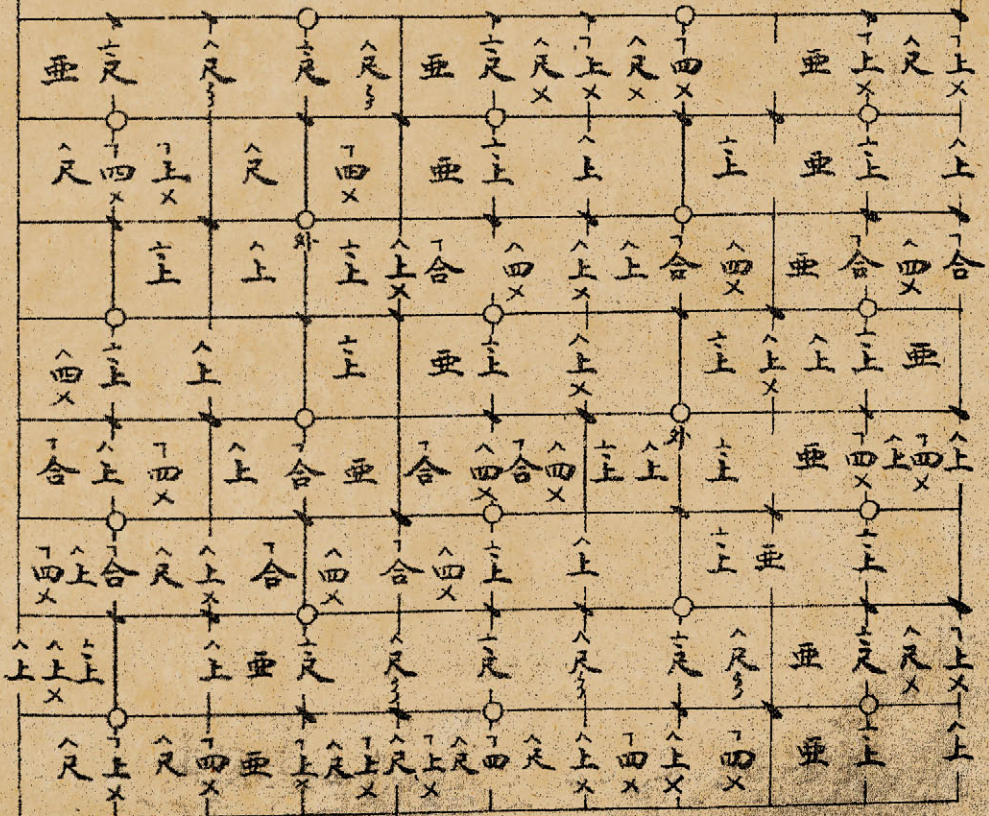 亜 尺 尺 尺 尺 亜 尺 尺× 上× 尺× 四× 亜 上× 尺 上×
尺 四× 上× 尺 四× 亜 上 上 上 亜 上 上
上 上 外 上 上× 合 四× 上× 上 合 四× 亜 合 四× 合
四× 上 上 上 亜 上 上× 上 上× 上 上 亜
合 上 四× 上 合 亜 合 四× 合 四× 上 上 外 上 亜 四× 上 四× 上
四× 上 合 尺 上× 合 四× 合 四× 上 上 上 亜 上
上 上× 上 上 亜 尺 尺 尺 尺 尺 尺 亜 尺 尺× 上×
尺 上× 尺 四× 亜 上× 尺× 上× 尺 上× 尺 四 尺 上× 四× 上× 四× 亜 上 上